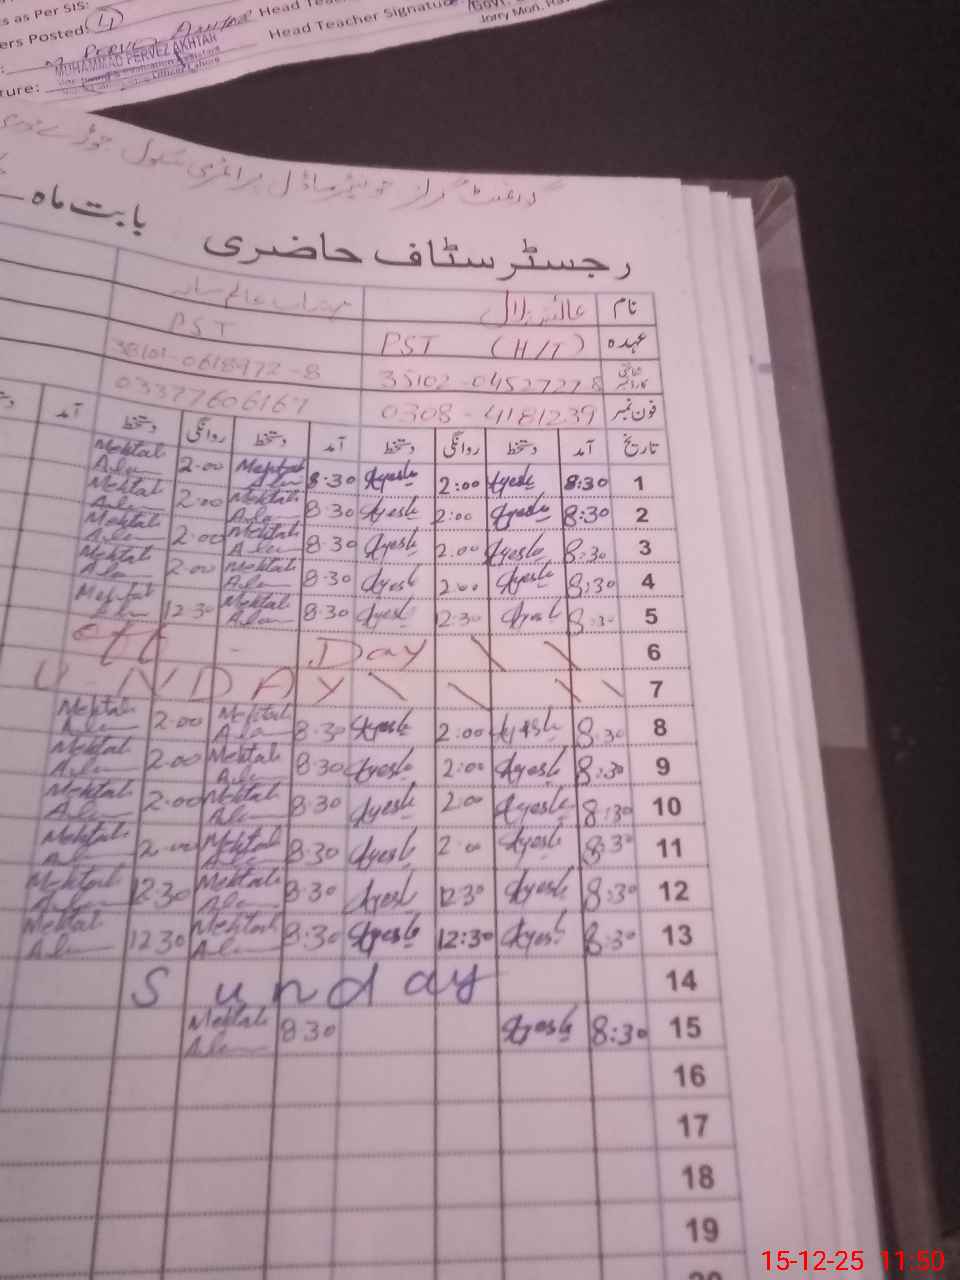 s as Per SIS:
ers Posted: 4
MUHAMMAD PERVEZ AKHTAR
Head Teacher Signature:
ture:
رجسٹر سٹاف حاضری بابت ماہ
نام
عہدہ PST (H/T) PST
35102-0452727-8 38101-0618972-8
فون نمبر 0308-4181239 03377606167
تاریخ آمد دستخط روانگی دستخط آمد دستخط روانگی دستخط آمد
1 8:30 Ayesha 2:00 Ayesha 8:30 Mehtab Alam 2:00 Mehtab Alam
2 8:30 Ayesha 2:00 Ayesha 8:30 Mehtab Alam 2:00 Mehtab Alam
3 8:30 Ayesha 2:00 Ayesha 8:30 Mehtab Alam 2:00 Mehtab Alam
4 8:30 Ayesha 2:00 Ayesha 8:30 Mehtab Alam 2:00 Mehtab Alam
5 8:30 Ayesha 12:30 Ayesha 8:30 Mehtab Alam 12:30 Mehtab Alam
6 off - Day
7 UNDAY
8 8:30 Ayesha 2:00 Ayesha 8:30 Mehtab Alam 2:00 Mehtab Alam
9 8:30 Ayesha 2:00 Ayesha 8:30 Mehtab Alam 2:00 Mehtab Alam
10 8:30 Ayesha 2:00 Ayesha 8:30 Mehtab Alam 2:00 Mehtab Alam
11 8:30 Ayesha 2:00 Ayesha 8:30 Mehtab Alam 2:00 Mehtab Alam
12 8:30 Ayesha 12:30 Ayesha 8:30 Mehtab Alam 12:30 Mehtab Alam
13 8:30 Ayesha 12:30 Ayesha 8:30 Mehtab Alam 12:30 Mehtab Alam
14 Sunday
15 8:30 Ayesha 8:30 Mehtab Alam
16
17
18
19
15-12-25 11:50